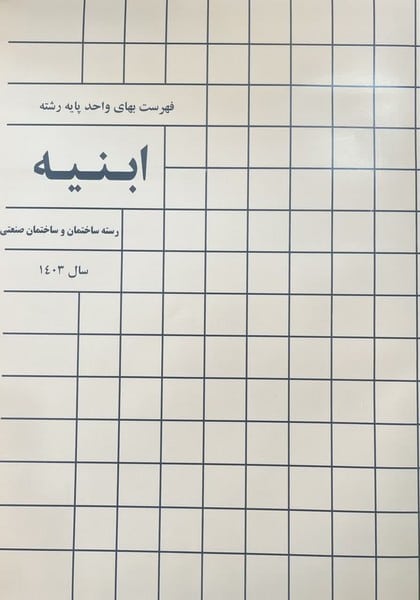 فهرست بهای واحد پایه رشته
ابنیه
رسته ساختمان و ساختمان صنعتی
سال ۱۴۰۳